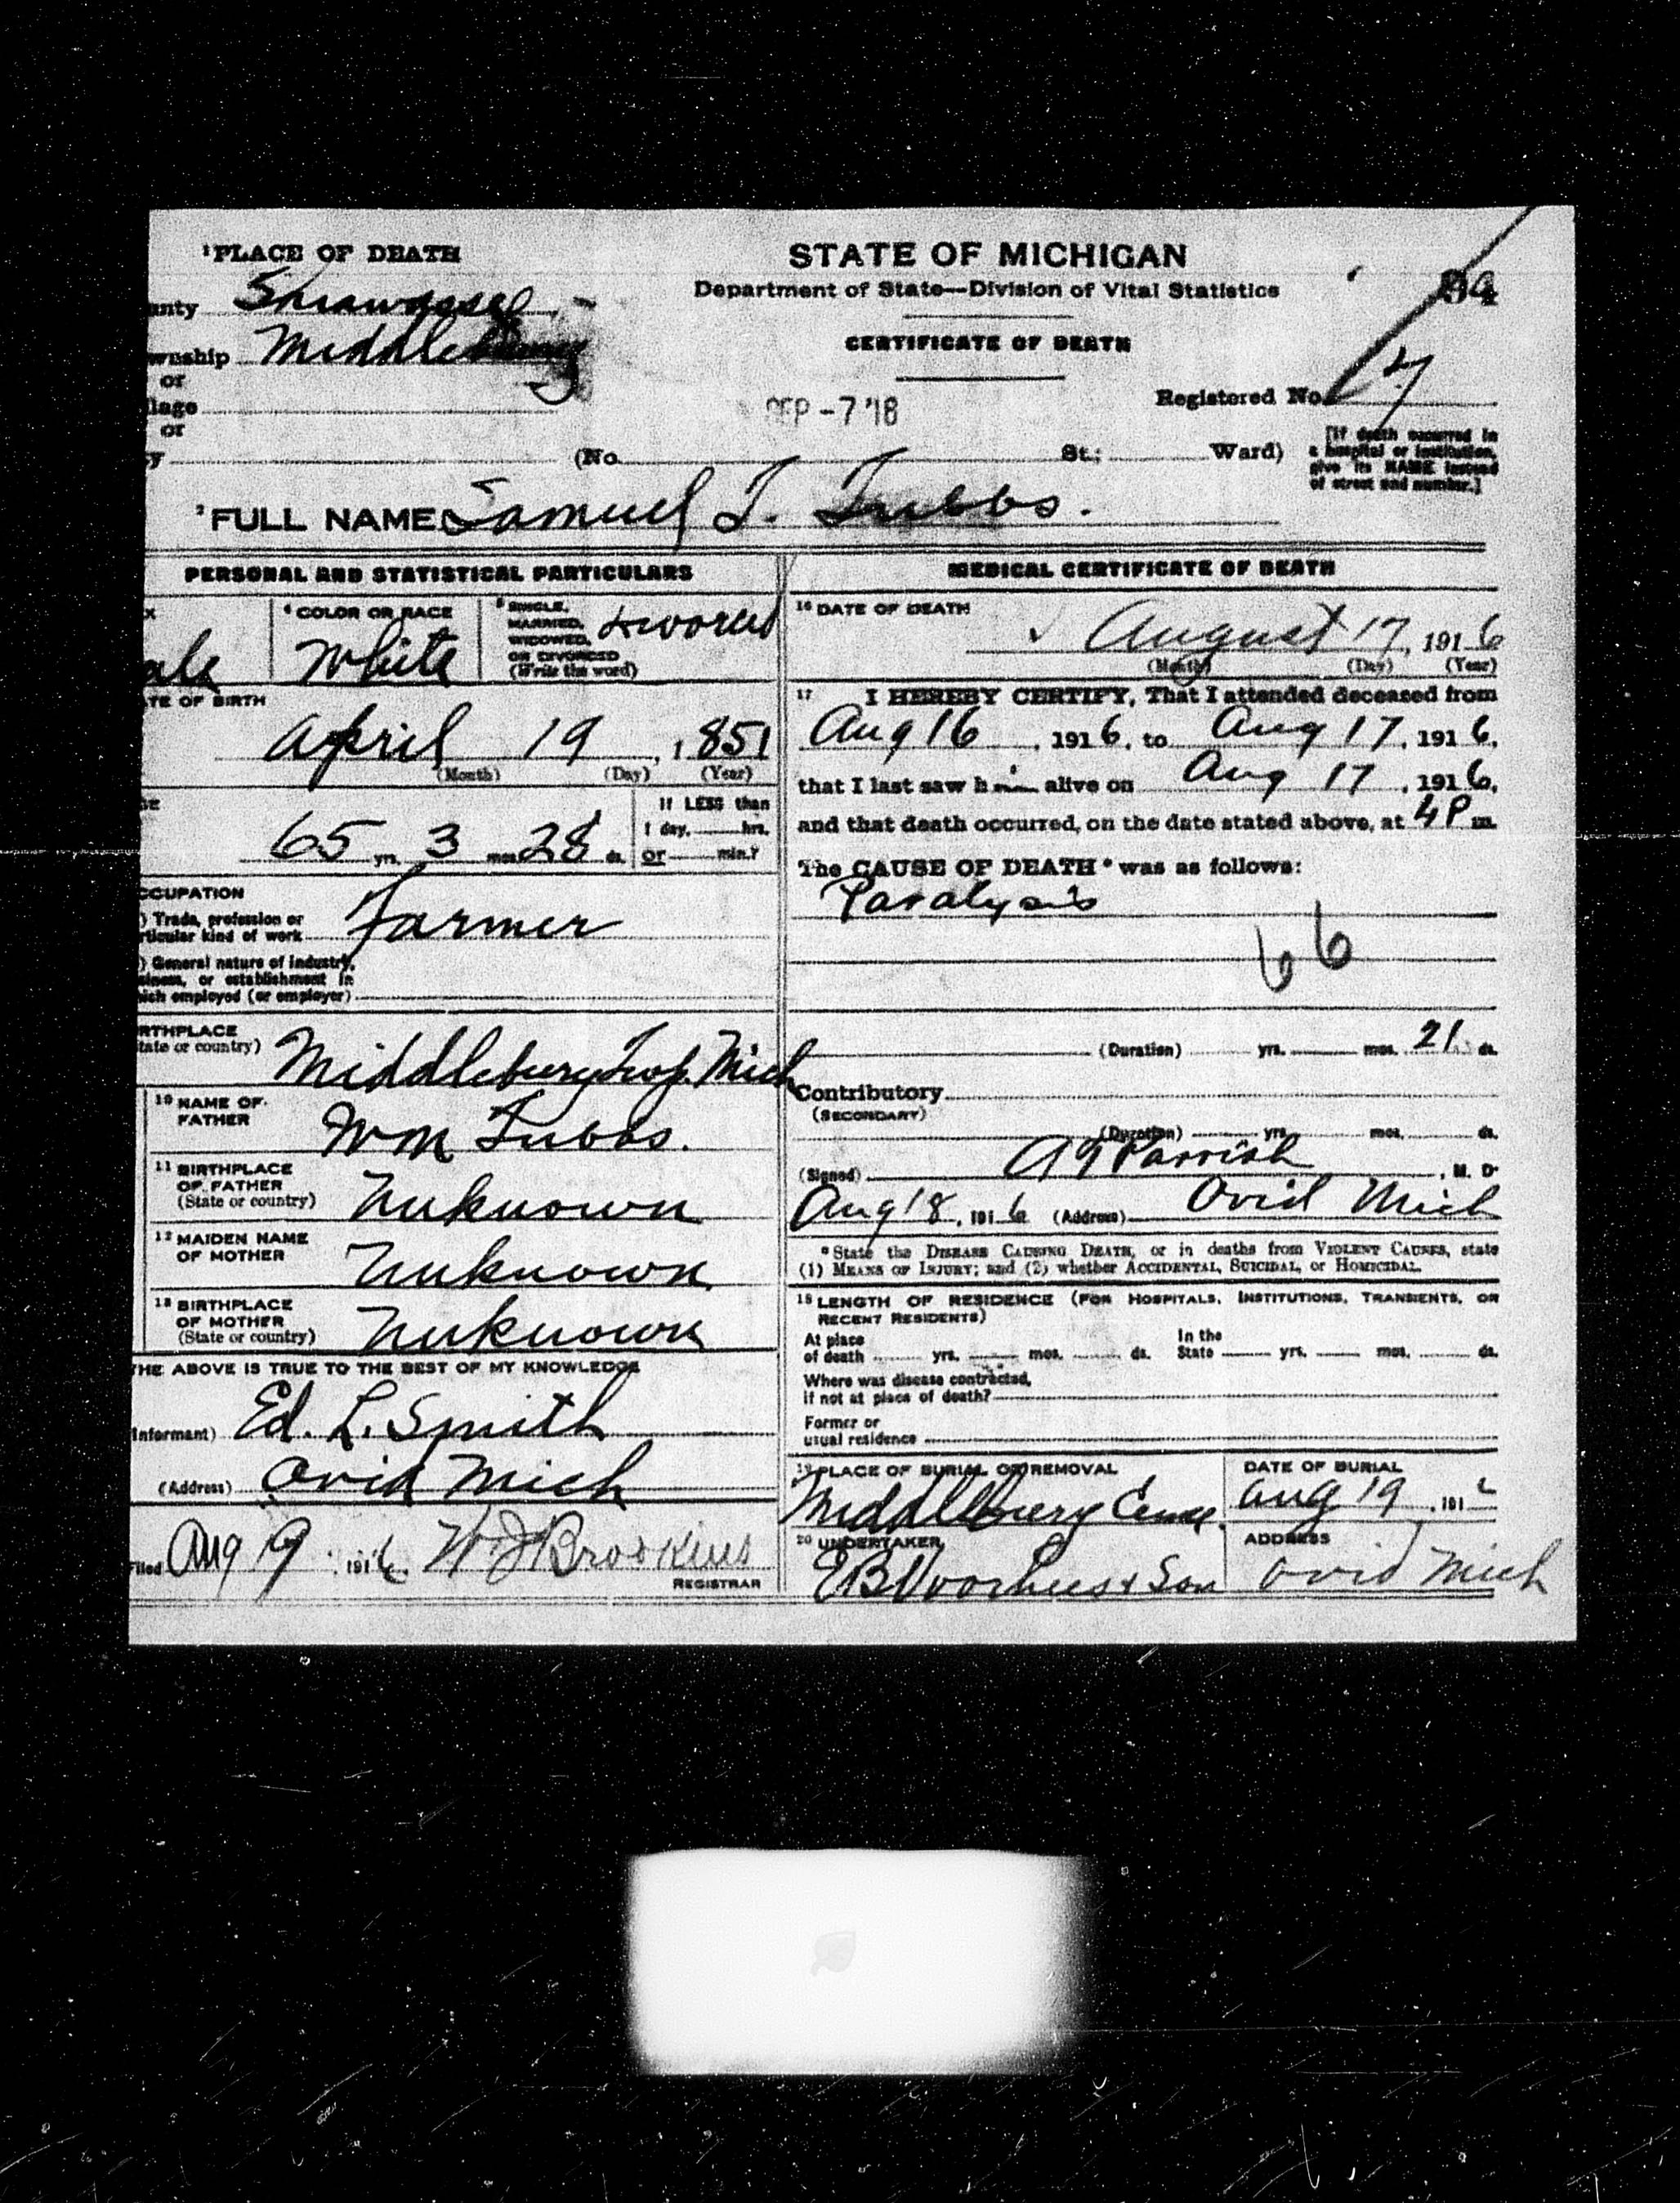 ¹PLACE OF DEATH
unty Shiawassee
wnship Middlebury
or
llage
or
y (No. St.; Ward)
STATE OF MICHIGAN
Department of State—Division of Vital Statistics
CERTIFICATE OF DEATH
SEP -7 '18
Registered No. 17
[If death occurred in
a hospital or institution,
give its NAME instead
of street and number.]
²FULL NAME Samuel T. Tubbs.
PERSONAL AND STATISTICAL PARTICULARS
X
ale
⁴ COLOR OR RACE
White
⁵ SINGLE,
MARRIED,
WIDOWED,
OR DIVORCED
(Write the word)
Divorced
TE OF BIRTH
April 19, 1851
(Month) (Day) (Year)
GE
65 yrs. 3 mos. 28 ds.
If LESS than
1 day, hrs.
or min.?
CCUPATION
) Trade, profession or
rticular kind of work Farmer
) General nature of industry,
siness, or establishment in
hich employed (or employer)
RTHPLACE
tate or country) Middlebury Twp. Mich
¹⁰ NAME OF
FATHER
Wm Tubbs.
¹¹ BIRTHPLACE
OF FATHER
(State or country)
Unknown
¹² MAIDEN NAME
OF MOTHER
Unknown
¹³ BIRTHPLACE
OF MOTHER
(State or country)
Unknown
THE ABOVE IS TRUE TO THE BEST OF MY KNOWLEDGE
Informant) Ed. L. Smith
(Address) Ovid Mich
Filed Aug 19, 1916 W J Brookins
REGISTRAR
MEDICAL CERTIFICATE OF DEATH
¹⁶ DATE OF DEATH
August 17, 1916
(Month) (Day) (Year)
¹⁷ I HEREBY CERTIFY, That I attended deceased from
Aug 16, 1916, to Aug 17, 1916,
that I last saw him alive on Aug 17, 1916,
and that death occurred, on the date stated above, at 4 P m.
The CAUSE OF DEATH* was as follows:
Paralysis
66
(Duration) yrs. mos. 21 ds.
Contributory
(SECONDARY)
(Duration) yrs. mos. ds.
(Signed) A G Parrish, M. D.
Aug 18, 1916 (Address) Ovid Mich
*State the DISEASE CAUSING DEATH, or in deaths from VIOLENT CAUSES, state
(1) MEANS OF INJURY; and (2) whether ACCIDENTAL, SUICIDAL, or HOMICIDAL.
¹⁸ LENGTH OF RESIDENCE (FOR HOSPITALS, INSTITUTIONS, TRANSIENTS, OR
RECENT RESIDENTS)
At place
of death yrs. mos. ds.
In the
State yrs. mos. ds.
Where was disease contracted,
if not at place of death?
Former or
usual residence
¹⁹ PLACE OF BURIAL OR REMOVAL
Middlebury Cem.
DATE OF BURIAL
Aug 19, 1916
²⁰ UNDERTAKER
E B Voorhees & Son
ADDRESS
Ovid Mich